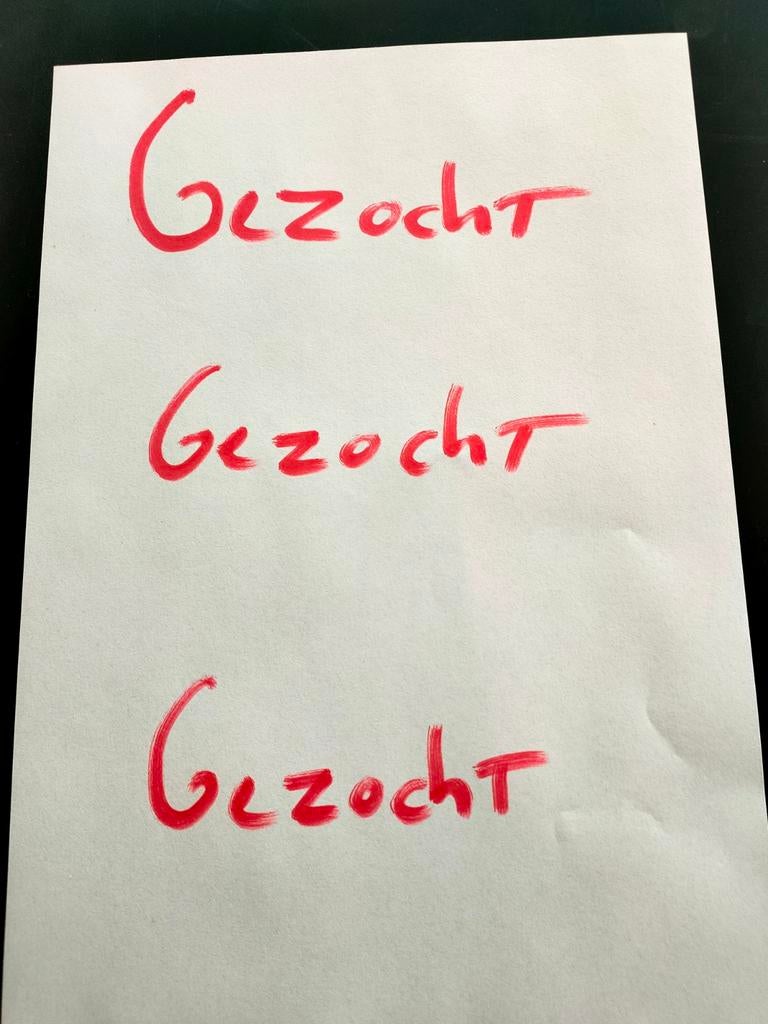 Gezocht
Gezocht
Gezocht